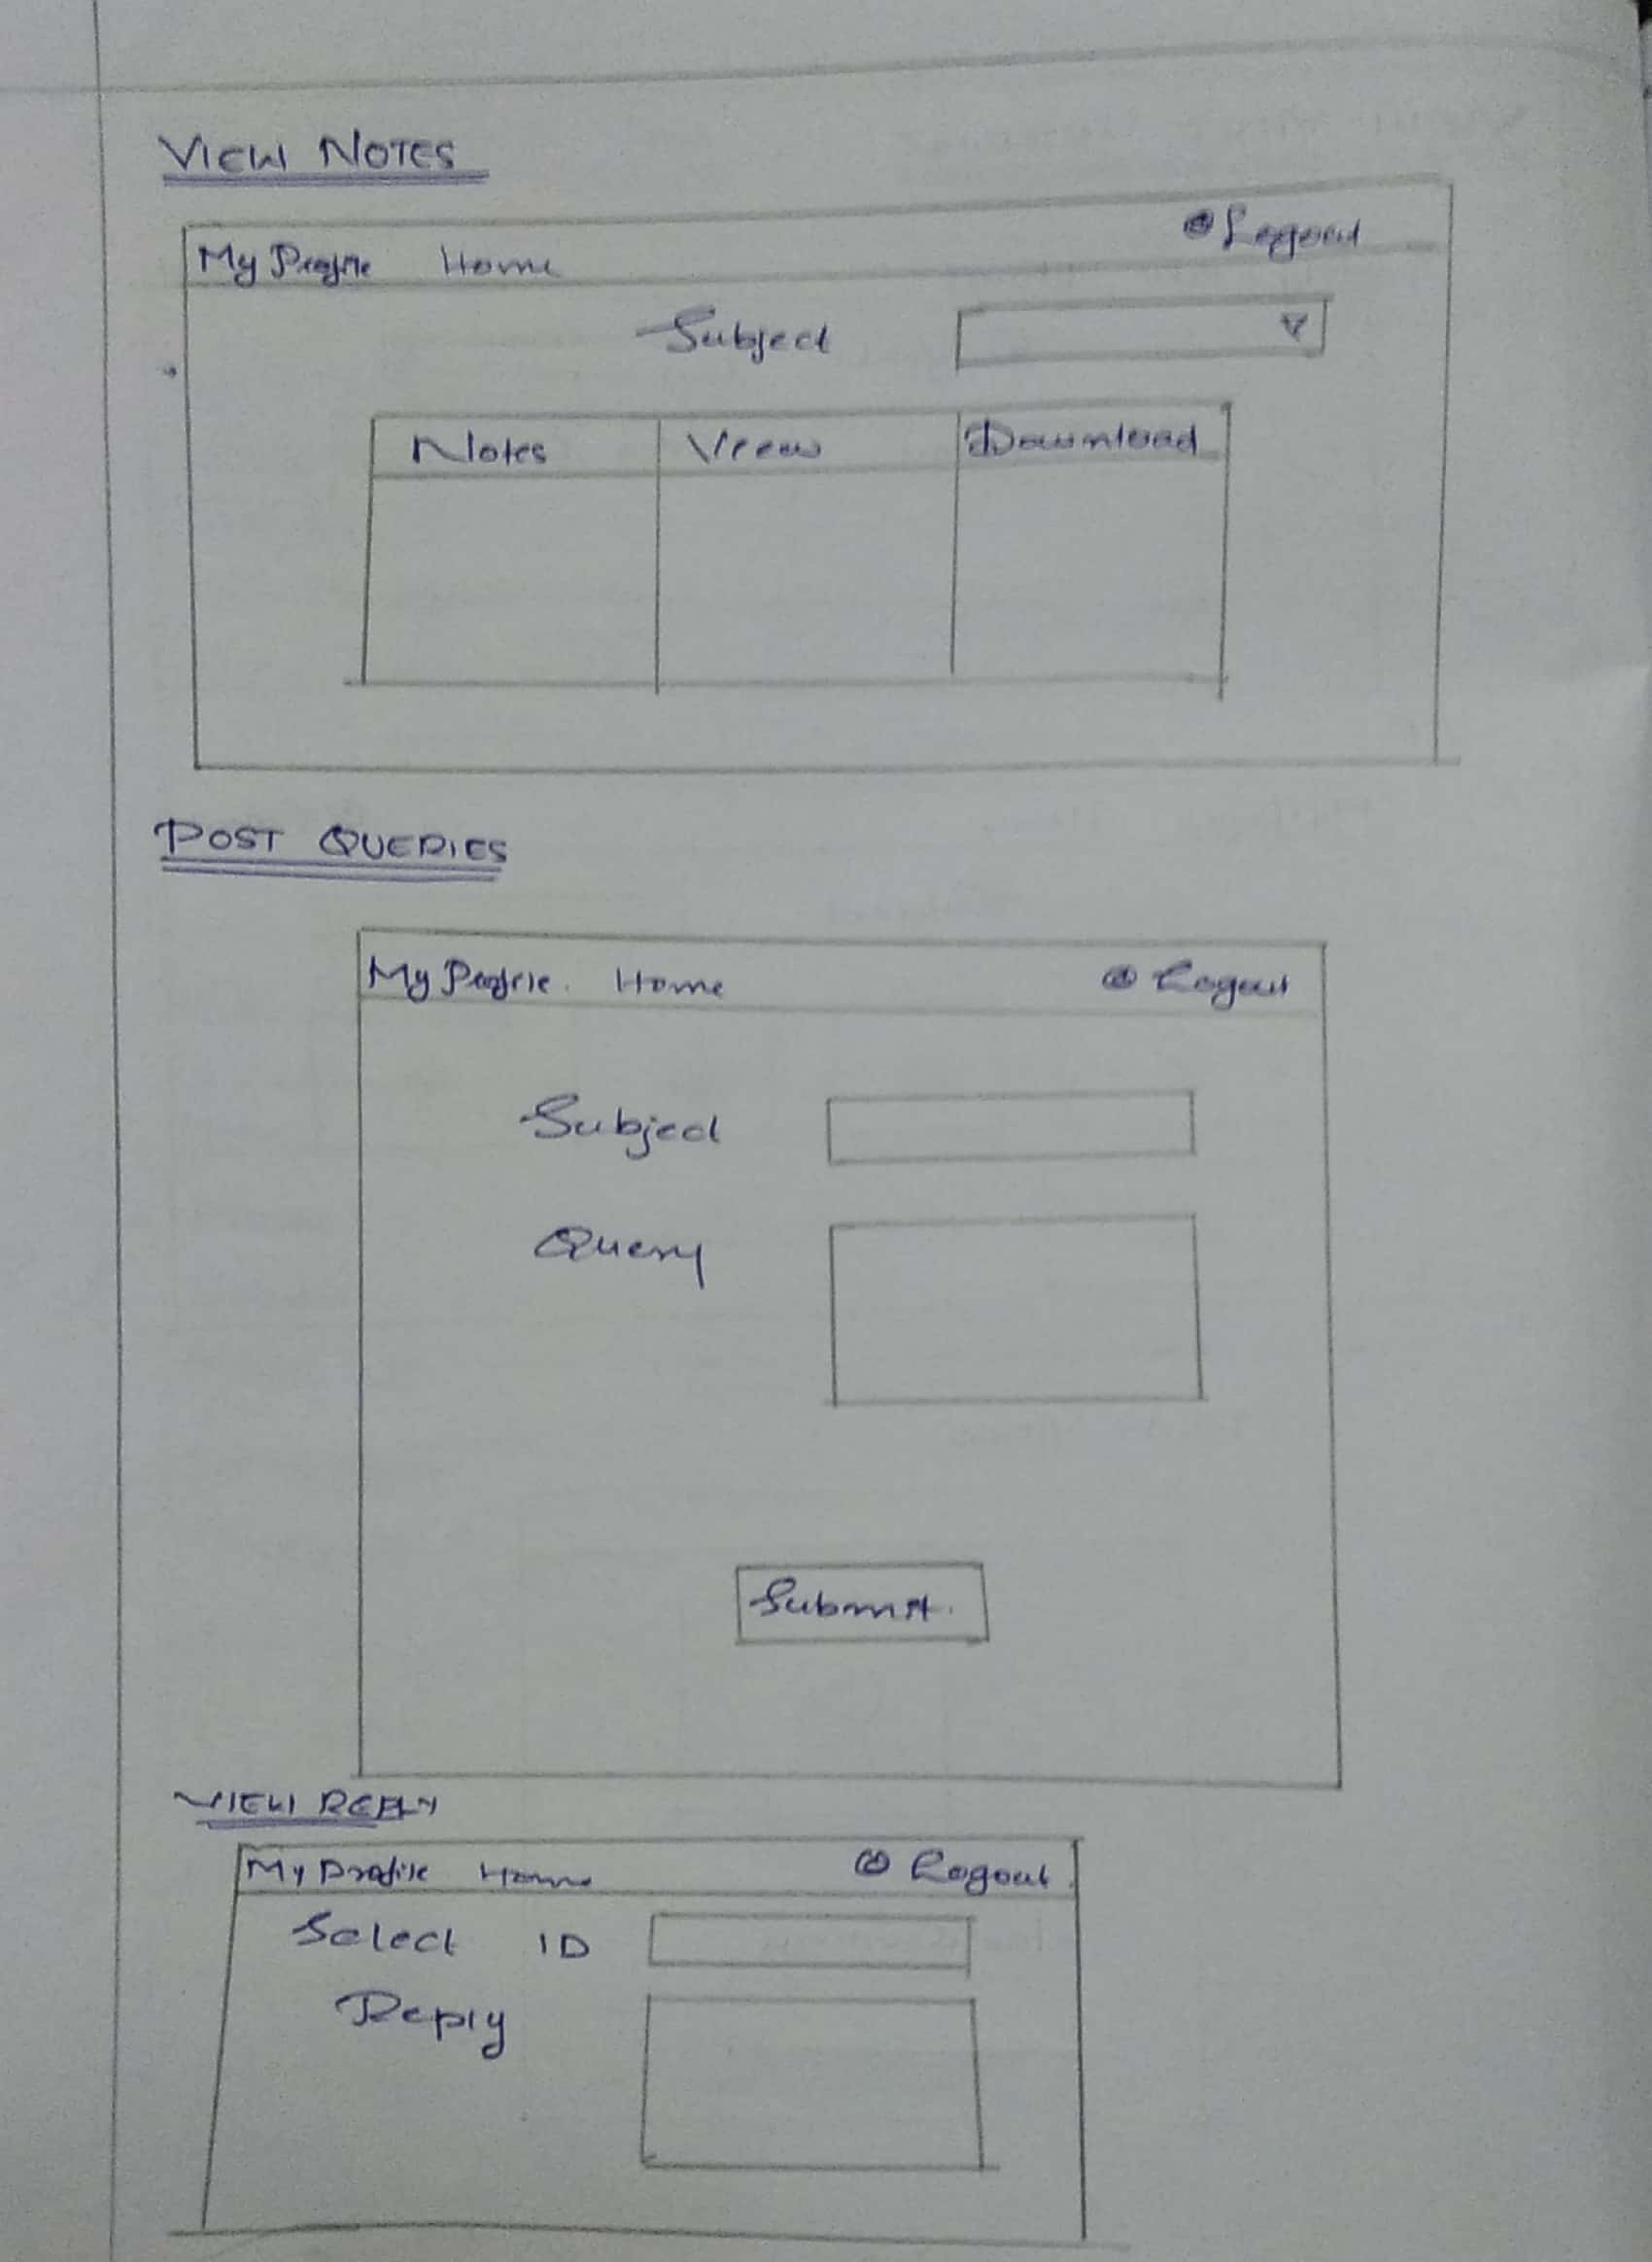 VIEW NOTES
My Profile Home Logout
Subject
Notes View Download
POST QUERIES
My Profile. Home Logout
Subject
Query
Submit.
VIEW REPLY
My Profile Home Logout
Select ID
Reply